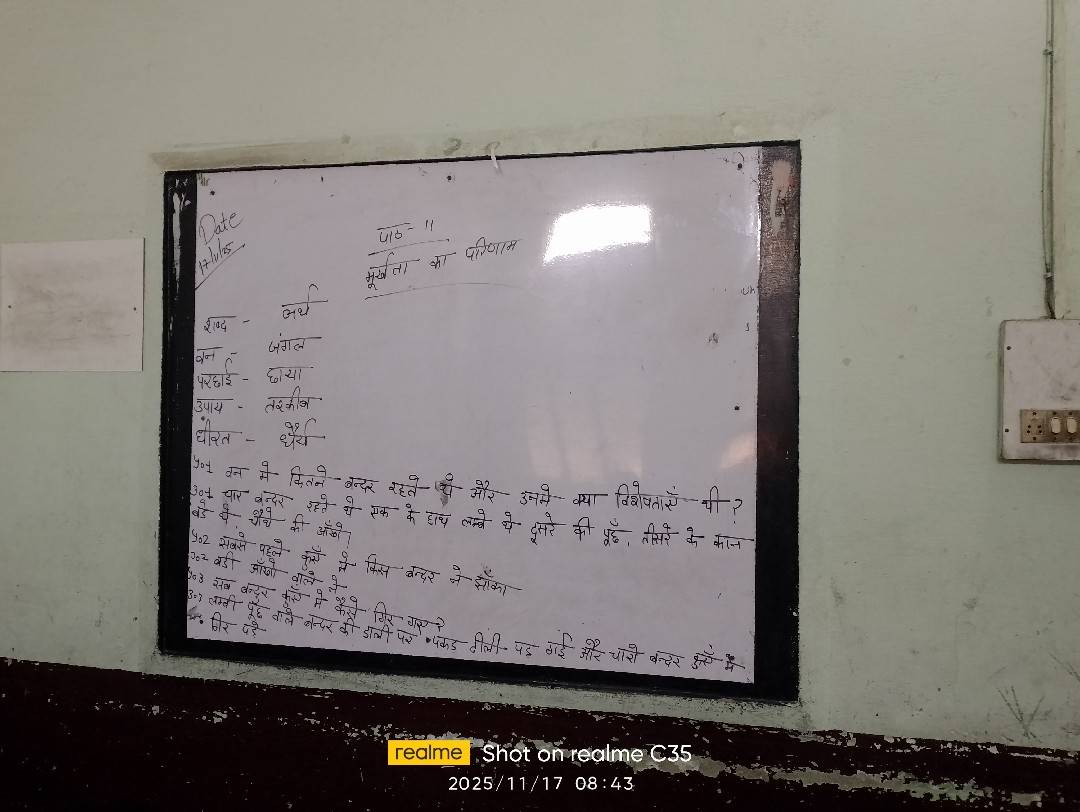 Date
17/11/25
पाठ - 11
मूर्खता का परिणाम
शब्द - अर्थ
वन - जंगल
परछाई - छाया
उपाय - तरकीब
धीरत - धैर्य
प्र०1 वन मे कितने बन्दर रहते थे और उनमे क्या विशेषताएँ थी ?
उ०1 चार बन्दर रहते थे एक के हाथ लम्बे थे दूसरे की पूँछ, तीसरे के कान
बडे थे, चौथे की आँखे।
प्र०2 सबसे पहले कुएँ मे किस बन्दर ने झाँका
उ०2 बडी आँखो वाले ने
प्र०3 सब बन्दर कुएँ मे कैसे गिर गए ?
उ०3 लम्बी पूँछ वाले बन्दर की डाली पर पकड ढीली पड गई और चारो बन्दर कुएँ मे
गिर पडे
realme Shot on realme C35
2025/11/17 08:43